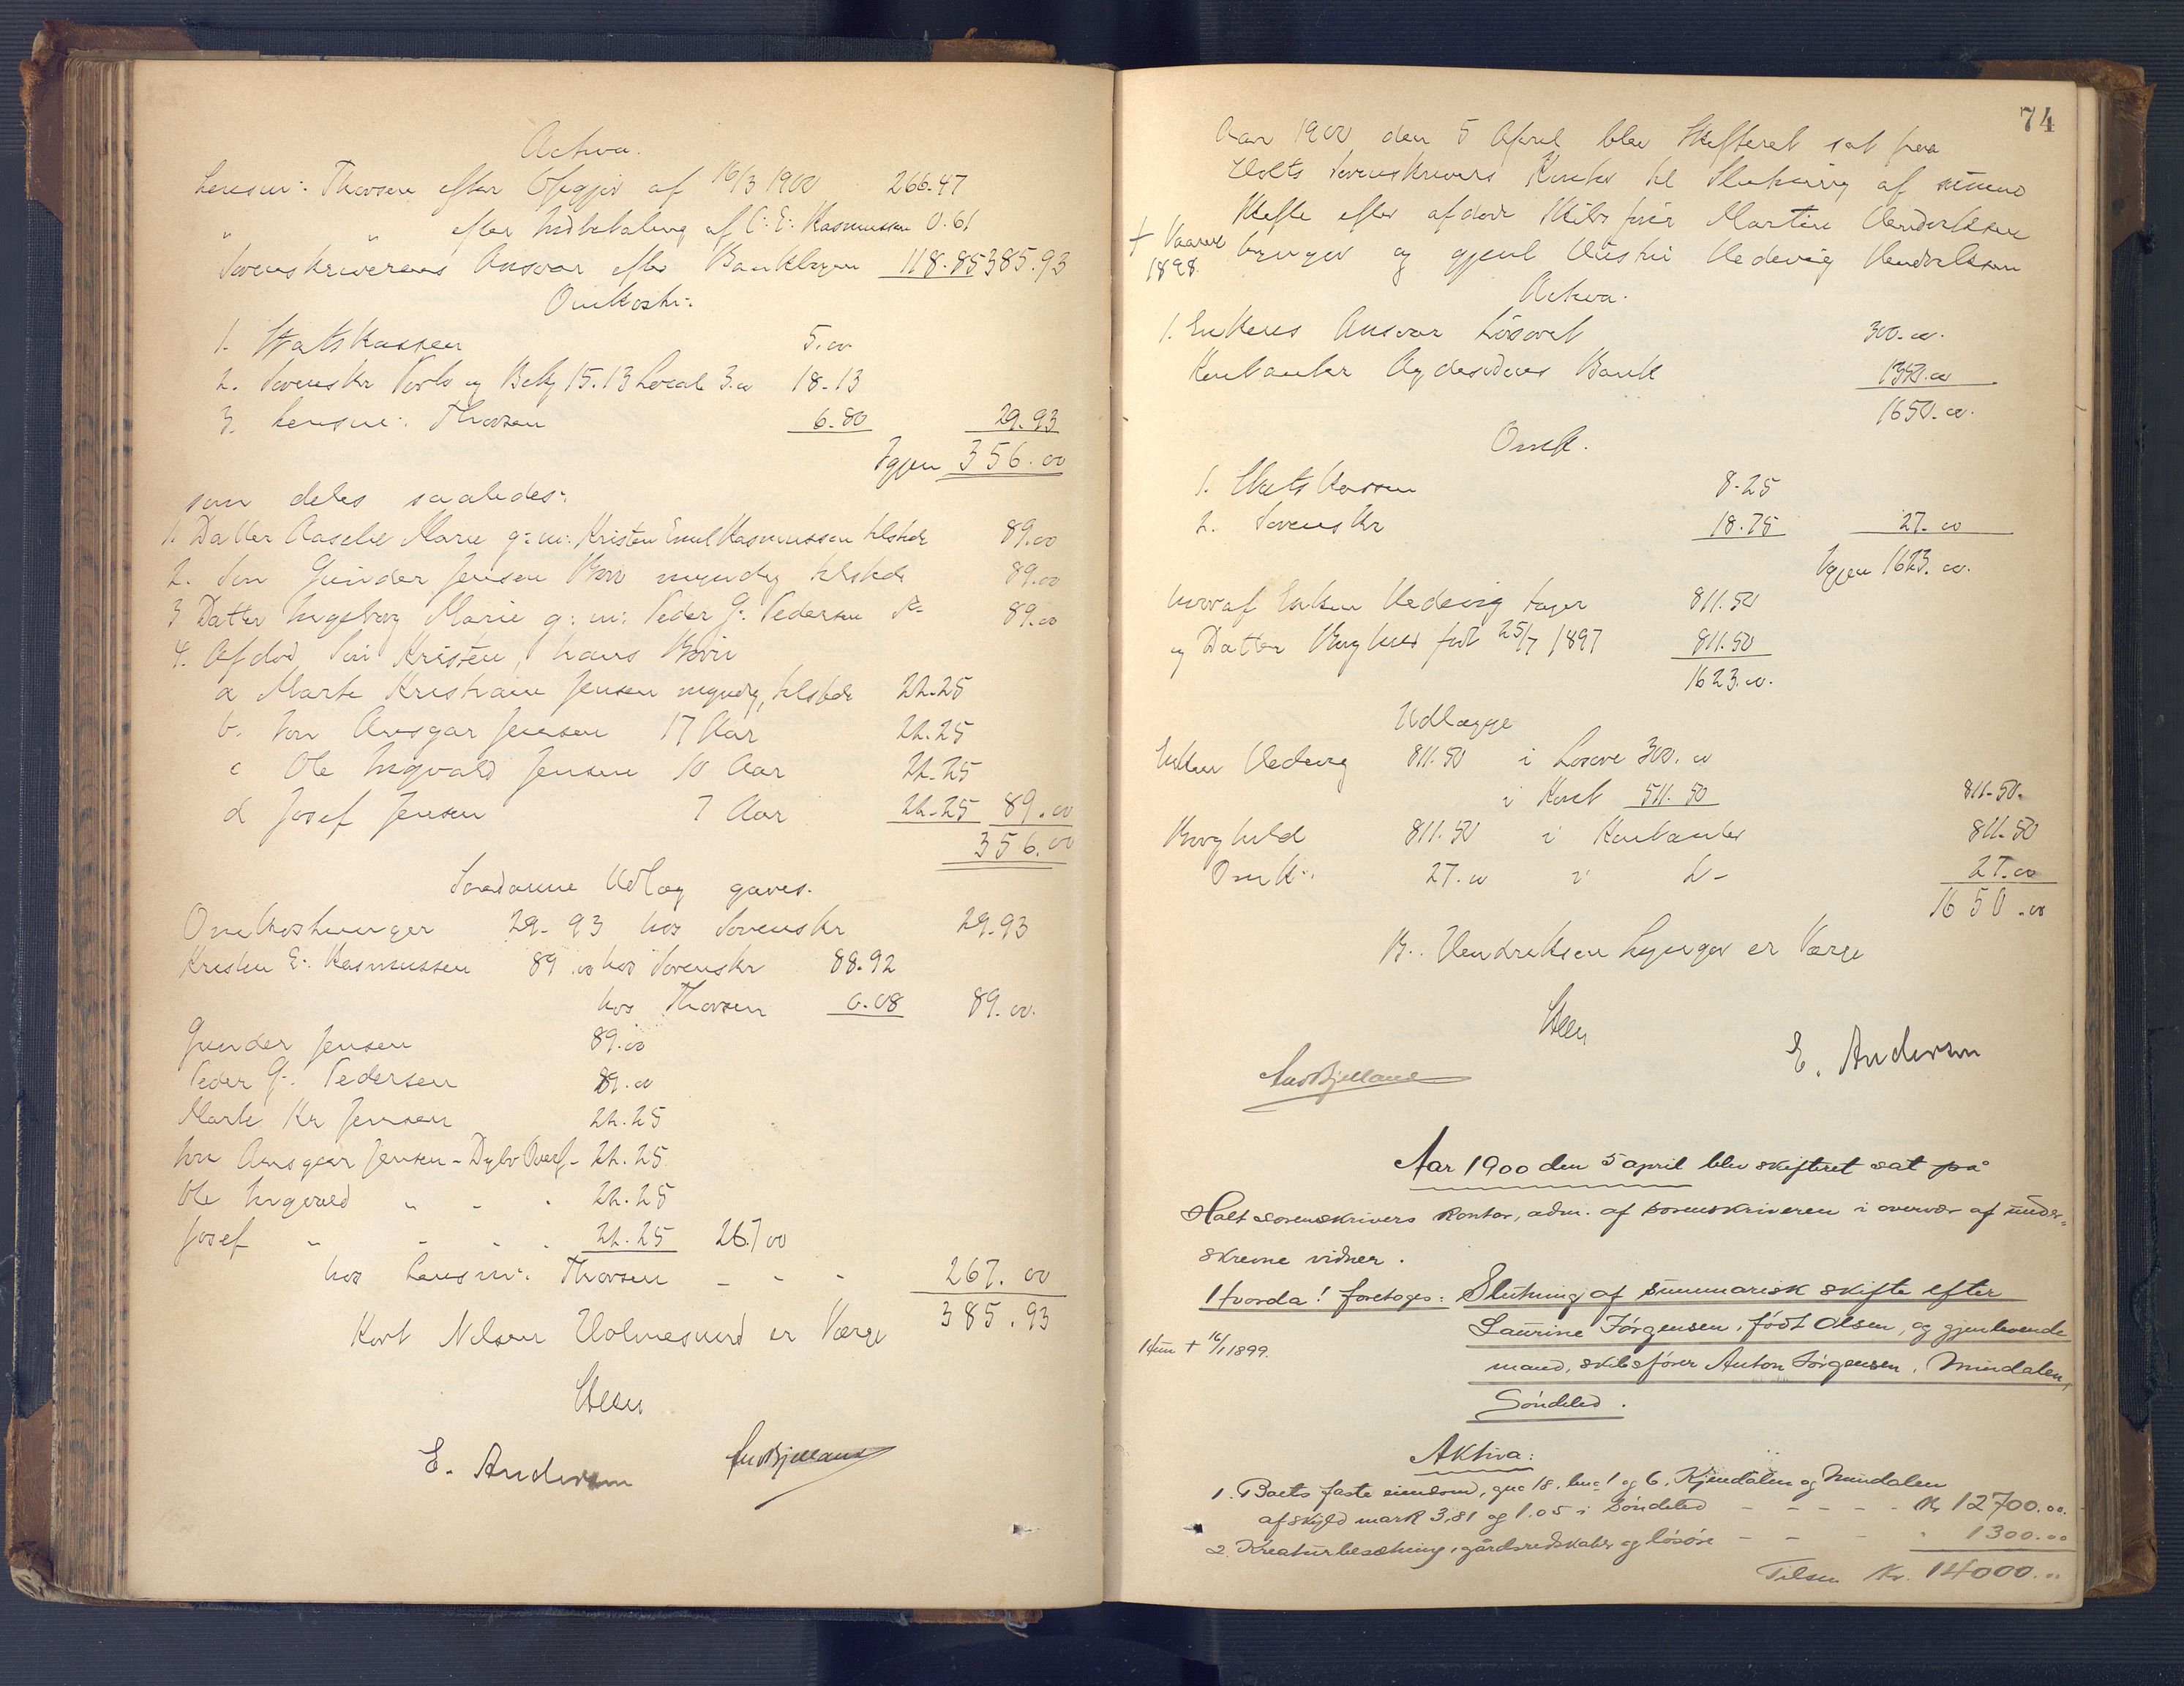 Activa.
Lensm: Thorsen efter Opgjør af 16/3 1900 266.47
" " efter Indbetaling af C. E. Rasmussen 0.61
Sorenskriverens Ansvar efter Bankbogen 118.85 385.93
Omkostn:
1. Statskassen 5.00
2. Sorenskr Porto og Bekj 15.13 Local 3.00 18.13
3. Lensm: Thorsen 6.80 29.93
Igjen 356.00
som deles saaledes:
1. Datter Aaselie Marie g: m: Kristen Emil Rasmussen tilstede 89.00
2. Søn Gunder Jensen myndig tilstede 89.00
3 Datter Ingeborg Marie g: m: Peder G. Pedersen 89.00
4. Afdød Søn Kristen, hans Børn
a Marte Kristiane Jensen myndig, tilstede 22.25
b. Ansgar Jensen 17 Aar 22.25
c Ole Ingvald Jensen 10 Aar 22.25
d Josef Jensen 7 Aar 22.25 89.00
356.00
Saadanne Udlæg gaves.
Omkostninger 29.93 hos Sorenskr 29.93
Kristen E. Rasmussen 89.00 hos Sorenskr 88.92
hos Thorsen 0.08 89.00.
Gunder Jensen 89.00
Peder G. Pedersen 89.00
Marte Kr Jensen 22.25
Ansgar Jensen - 22.25
Ole Ingvald " - . 22.25
Josef " - . . 22.25 267.00
hos Lensm. Thorsen - - - 267.00
385.93
Kort Nilsen Holmesund er Værge
E. Andersen
74
Aar 1900 den 5 April blev Skifteret sat paa
Holts Sorenskrivers Kontor til Slutning af summ
Skifte efter afdøde Skibsfører Martin Hendriksen
+ Vaaren 1898.
Lyngør og gjenl Hustru Hedevig Hendriksen
Activa.
1. Enkens Ansvar Løsøret 300.00.
Kontanter Agdesidens Bank 1350.00
1650.00.
Omk.
1. Statskassen 8.25
2. Sorenskr 18.75 27.00
Igjen 1623.00.
hvoraf Enken Hedevig tager 811.50
og Datter Borghild født 25/7 1897 811.50
1623.00.
Udlægge
Enken Hedevig 811.50 i Løsøre 300.00
i Kont 511.50 811.50.
Borghild 811.50 i Kontanter 811.50
Omk. 27.00 i 27.00
1650.00
B. Hendriksen Lyngør er Værge
E. Andersen
Aar 1900 den 5 april blev skifteret sat på
Holt sorenskrivers kontor, adm. af sorenskriveren i overvær af under-
skrevne vidner.
Hvorda! foretoges: Slutning af summarisk skifte efter
Laurine Jørgensen, født Olsen, og gjenlevende
Hun + 16/1 1899.
mand, skibsfører Anton Jørgensen, Mindalen,
Søndeled.
Aktiva:
1. Boets faste eiendom, gno 18. bno 1 og 6. Kjendalen og Mindalen
af skyld mark 3,81 og 1.05 i Søndeled - - - - - Kr 12700.00.
2. Kreaturbesætning, gårdsredskaber og løsøre - - - " 1300.00
Tilsm Kr. 14000.00